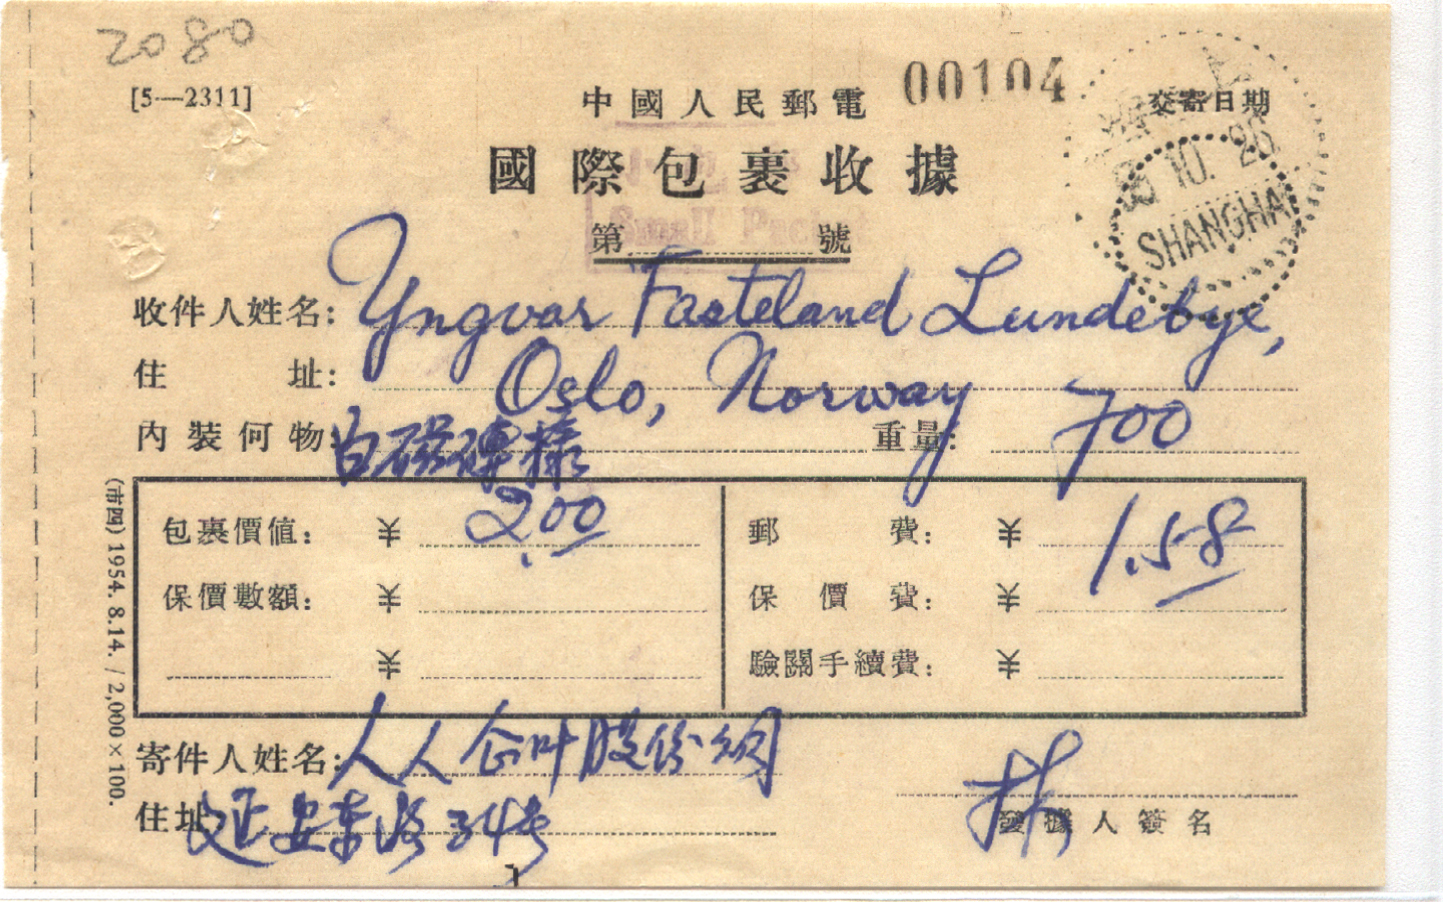 2080
[5—2311]
中國人民郵電 00104 交寄日期
國際包裹收據
Small Packet
第 號
10. 26
SHANGHAI
收件人姓名: Yngvar Fasteland Lundebye,
住 址: Oslo, Norway
內裝何物: 白磁磚樣 重量: 700
包裹價值: ¥ 2.00 郵 費: ¥ 1.58
保價數額: ¥ 保 價 費: ¥
¥ 驗關手續費: ¥
寄件人姓名: 人人企叶股份
住址 延安東路34号
林
發據人簽名
(市四) 1954. 8.14. / 2,000×100.